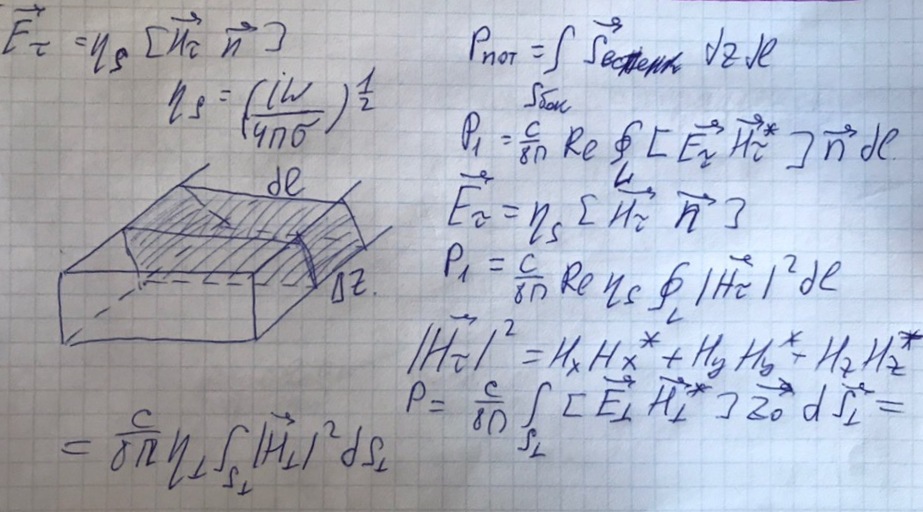 E⃗τ = ηs [H⃗τ n⃗]
ηs = (iω/4πσ)^1/2
dl
Δz.
Pпот = ∫Sбок S⃗ dz dl
P₁ = c/8π Re ∮L [E⃗τ H⃗τ*] n⃗ dl
E⃗τ = ηs [H⃗τ n⃗]
P₁ = c/8π Re ηs ∮L |H⃗τ|² dl
|H⃗τ|² = HxHx* + HyHy* + HzHz*
P = c/8π ∫S⊥ [E⃗⊥ H⃗⊥*] z⃗₀ dS⃗⊥ =
= c/8π η⊥ ∫S⊥ |H⃗⊥|² dS⊥